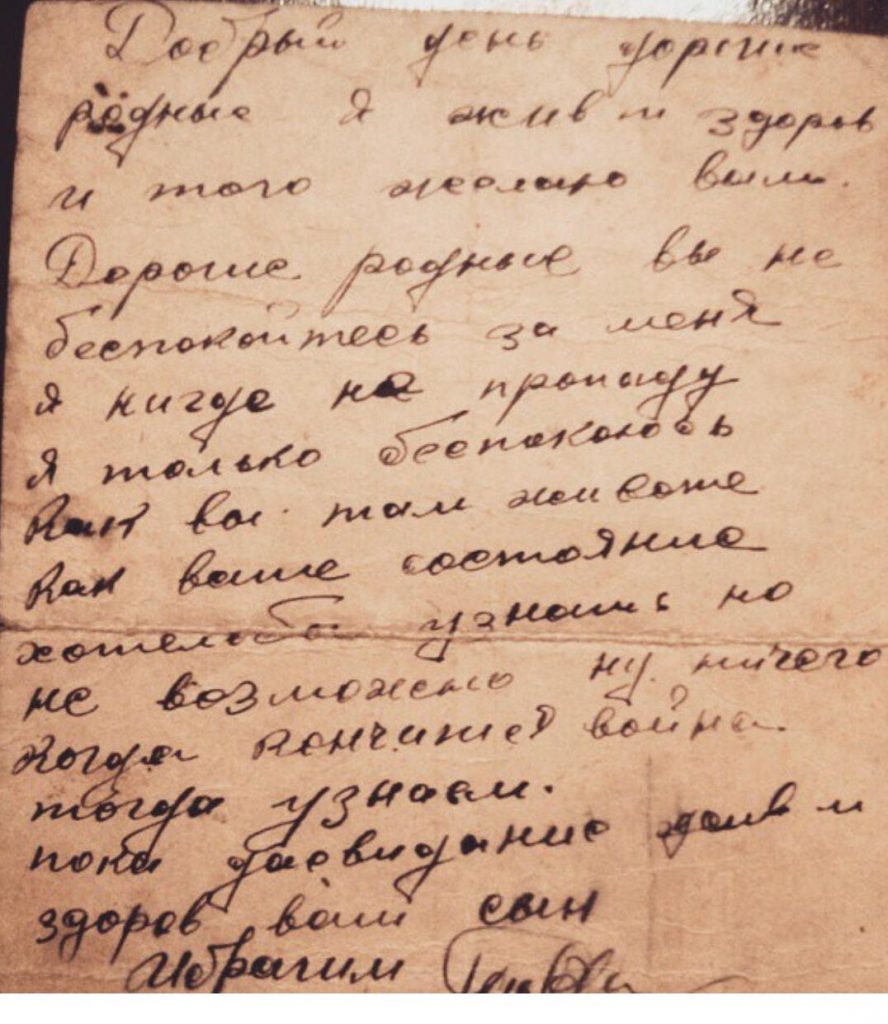 Добрый день дорогие
родные я жив и здоров
и того желаю вам.
Дорогие родные вы не
беспокойтесь за меня
я нигде не пропаду
я только беспокоюсь
как вы там живете
как ваше состояние
хотелось бы узнать но
не возможно ну ничего
когда кончится война
тогда узнаем.
пока досвидание жив и
здоров ваш сын
Ибрагим